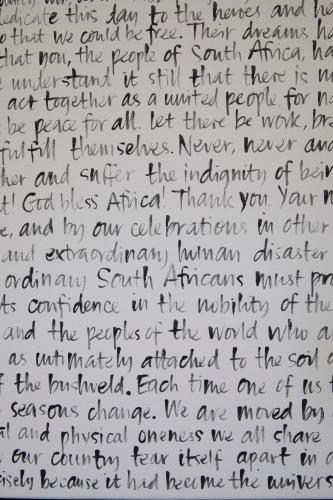 dedicate this day to the heroes and he
so that we could be free. Their dreams ha
that you, the people of South Africa, ha
e understand it still that there is n
act together as a united people, for n
be peace for all. Let there be work, bre
fulfill themselves. Never, never and
her and suffer the indignity of bein
t! God bless Africa! Thank you. Your m
e, and by our celebrations in other
and extraordinary human disaster
ordinary South Africans must pro
ts confidence in the nobility of the
and the peoples of the world who a
as intimately attached to the soil o
f the bushveld. Each time one of us t
seasons change. We are moved by
al and physical oneness we all share
our country tear itself apart in a
isely because it had become the univers